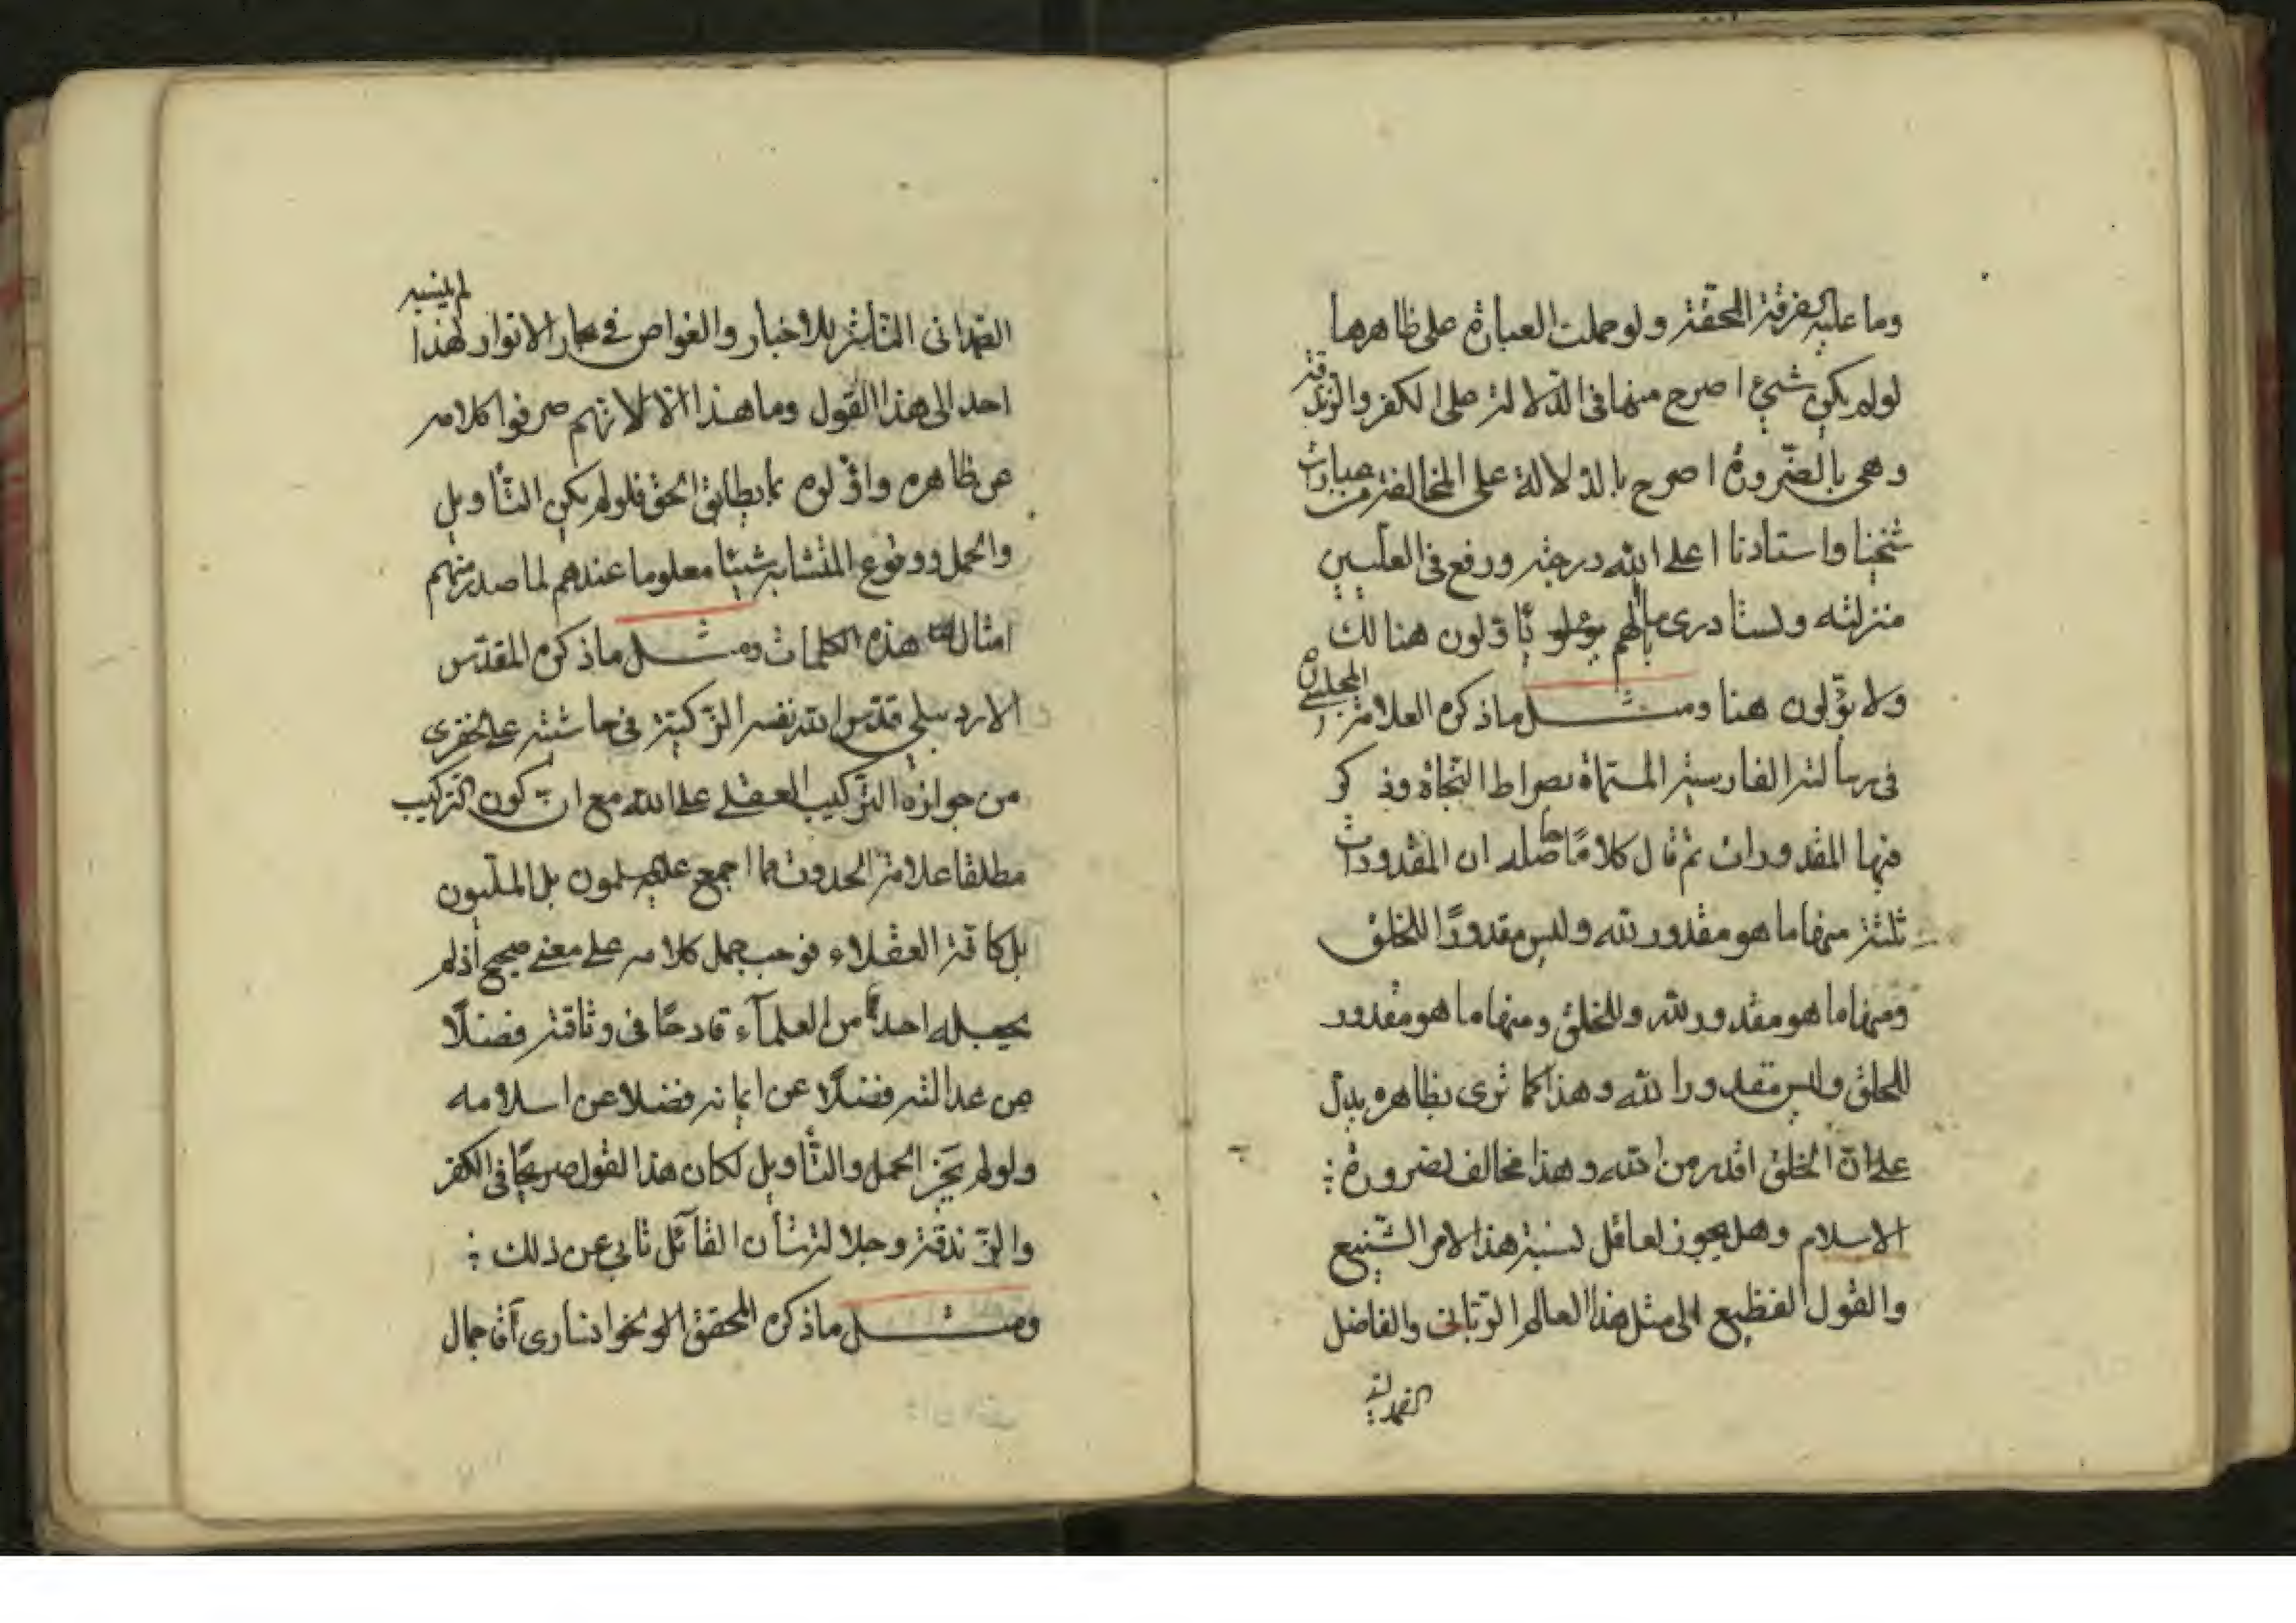 وما عليه الفرقة المحقة ولو حملت العبارة على ظاهرها
لولم يكن شيئ اصرح منها فى الدلالة على الكفر والزندقة
وهى بالضرورة اصرح بالدلالة على المخالفة من عبارات
شيخنا واستادنا اعلى الله درجته ورفع فى العليين
منزلته ولست ادرى مالهم يأولون هنالك
ولا يؤلون هنا ومثل ماذكره العلامة المجلسي ره
فى رسالته الفارسية المسماة بصراط النجاة وذكر
فيها المقدورات ثم قال كلامًا حاصله ان المقدورات
ثلثة منها ما هو مقدور لله وليس مقدورًا للخلق
ومنها ما هو مقدور لله وللخلق ومنها ما هو مقدور
للخلق وليس مقدورا لله وهذا كما ترى بظاهره يدل
على ان الخلق اقدر من الله وهذا مخالف لضرورة
الاسلام وهل يجوز لعاقل نسبة هذا الامر الشنيع
والقول الفظيع الى مثل هذا العالم الربانى والفاضل
الصمدانى
الصمدانى الناشر للاخبار والغواص فى بحار الانوار لهذا لم ينسبه
احد الى هذا القول وما هذا الا لانهم صرفوا كلامه
عن ظاهره واولوه بما يطابق الحق فلولم يكن التأويل
والحمل ووقوع المتشابه شيئا معلوما عندهم لما صدر منهم
امثال هذه الكلمات ومثل ماذكره المقدس
الاردبيلي قدس الله نفسه الزكية فى حاشيته على الخفرى
من جوازه التركيب العقلى على الله مع ان كون التركيب
مطلقا علامة الحدوث مما اجمع عليه المسلمون بل المليون
بل كافة العقلاء فوجب حمل كلامه على معنى صحيح اذ لم
يجعله احد من العلمآء قادحًا فى وثاقته فضلًا
عن عدالته فضلًا عن ايمانه فضلا عن اسلامه
ولولم يجز الحمل والتأويل لكان هذا القول صريحًا فى الكفر
والزندقة وجلالة شأن القآئل تابى عن ذلك
ومثل ماذكره المحقق الخوانسارى آقا جمال